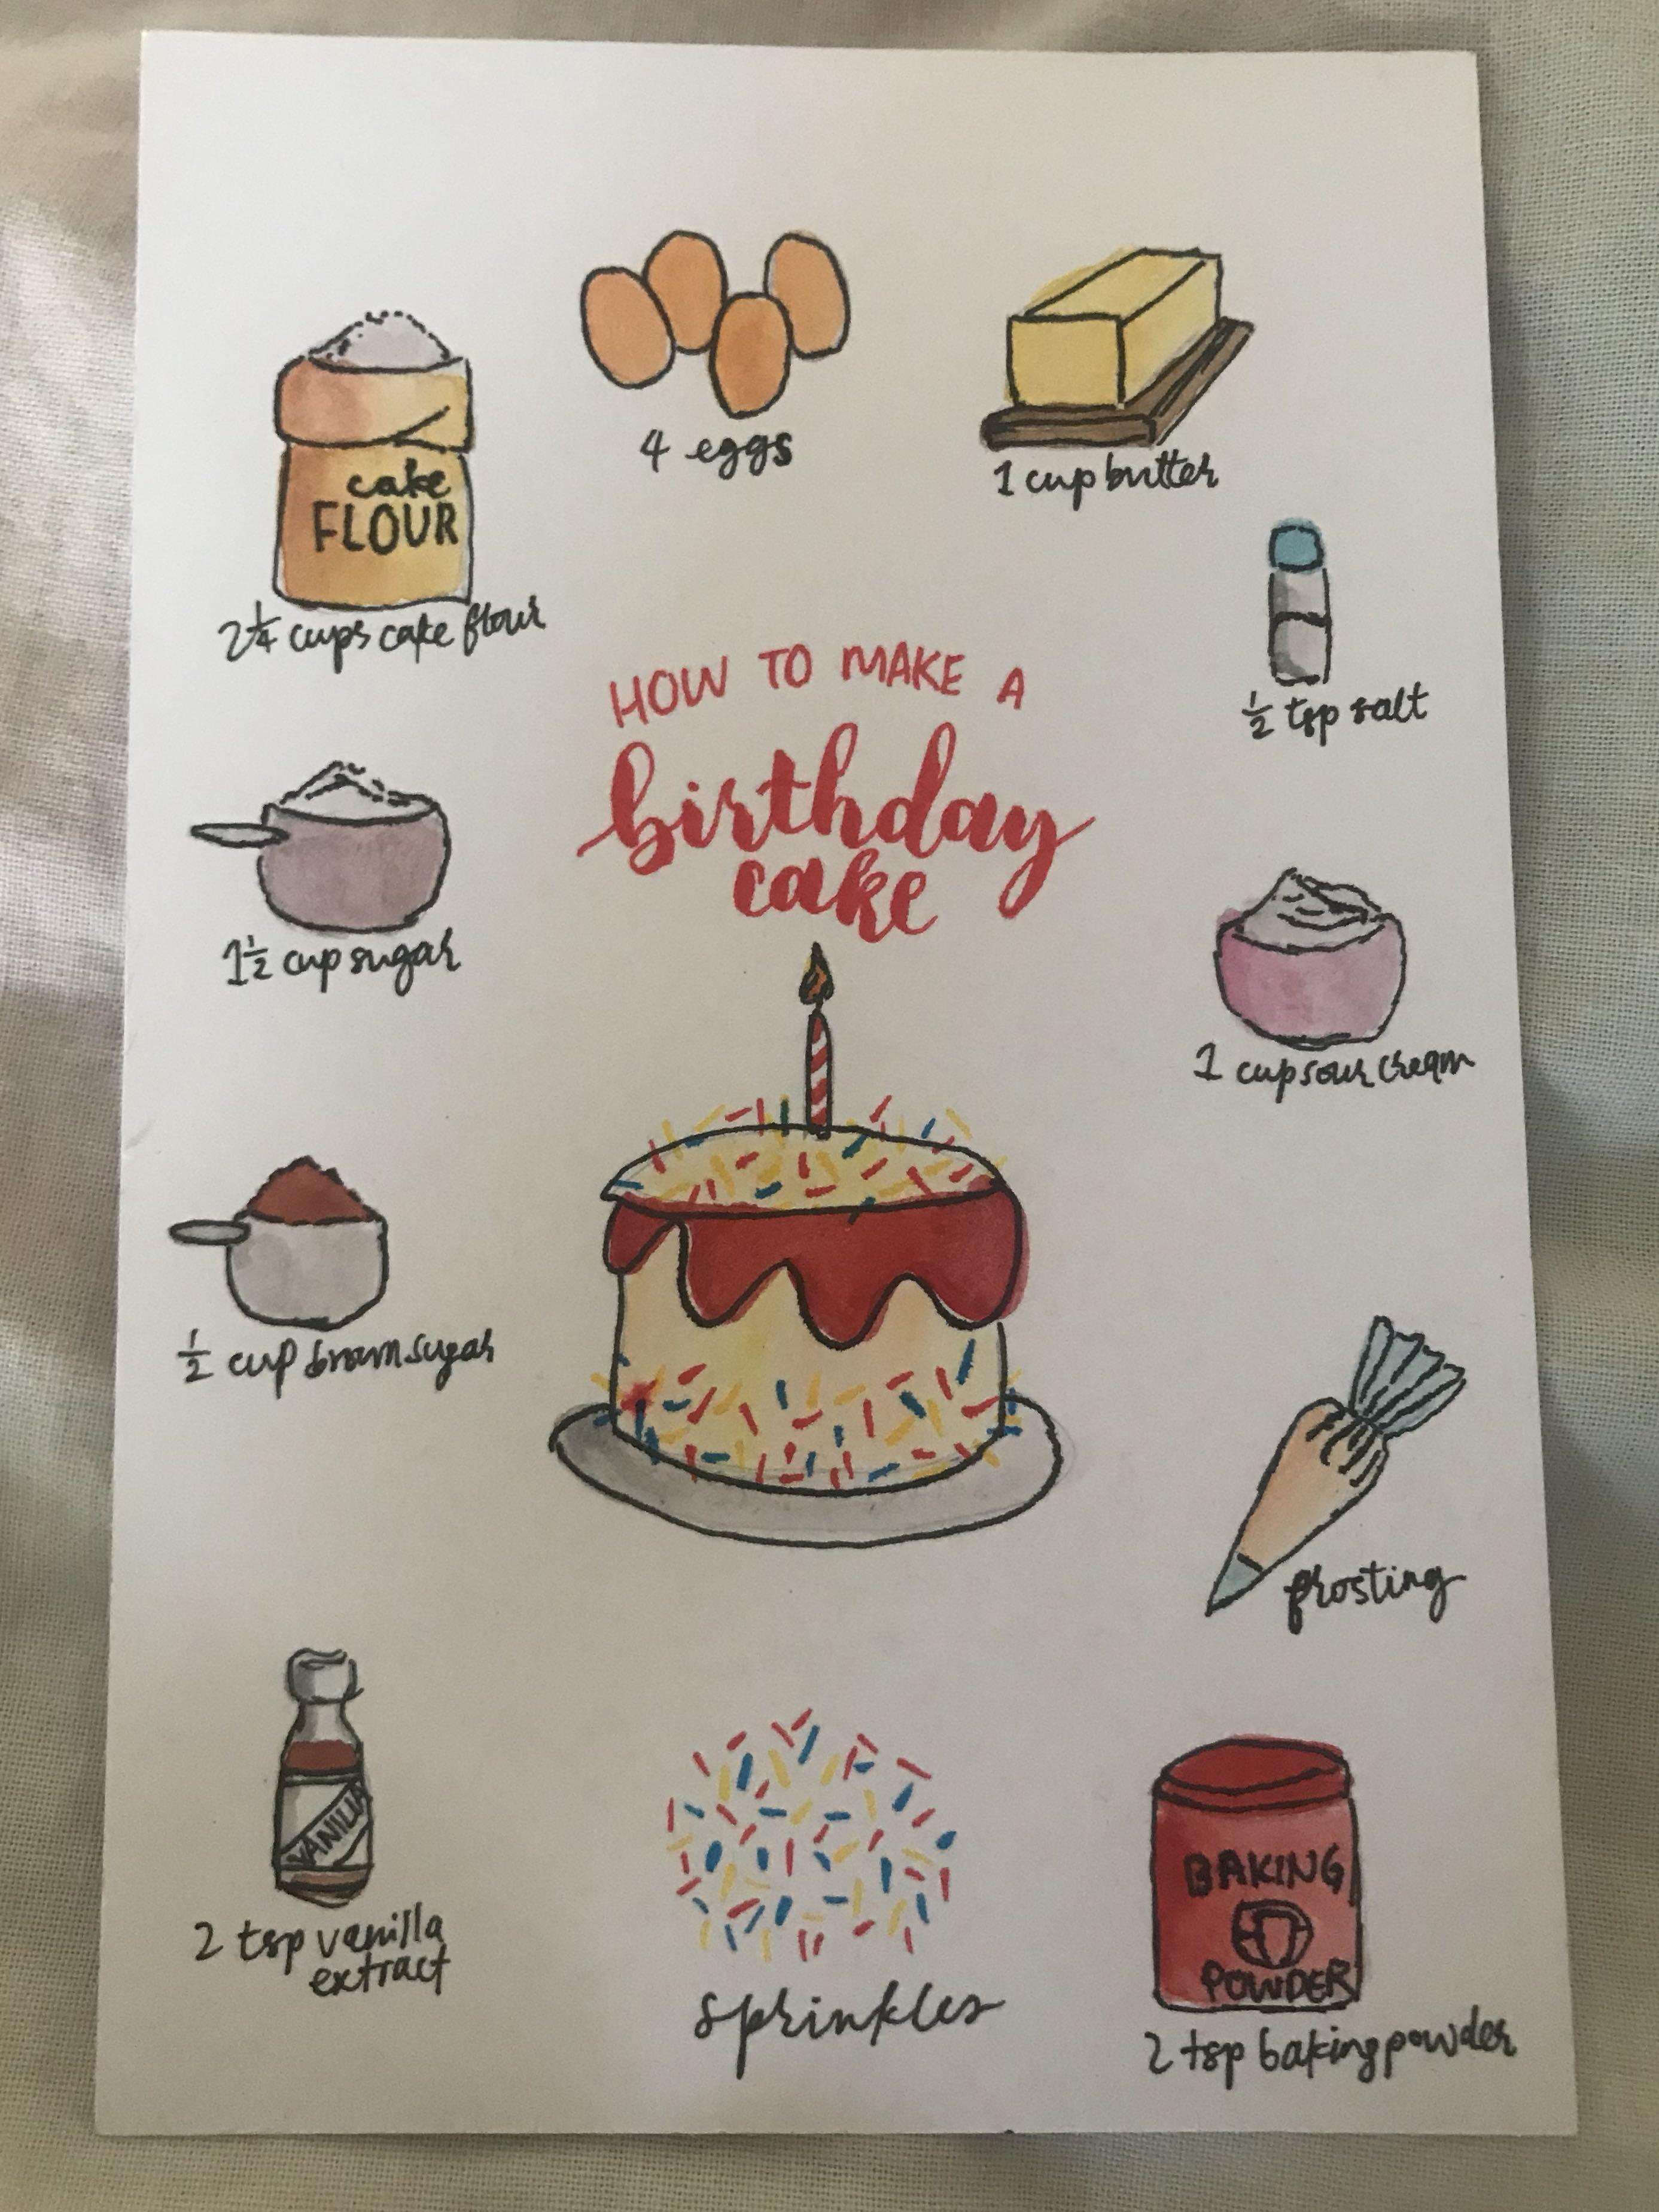 4 eggs
1 cup butter
cake
FLOUR
2 1/4 cups cake flour
1/2 tsp salt
HOW TO MAKE A
birthday
cake
1 1/2 cup sugar
1 cup sour cream
1/2 cup brown sugar
frosting
VANILLA
2 tsp vanilla
extract
sprinkles
BAKING
POWDER
2 tsp baking powder